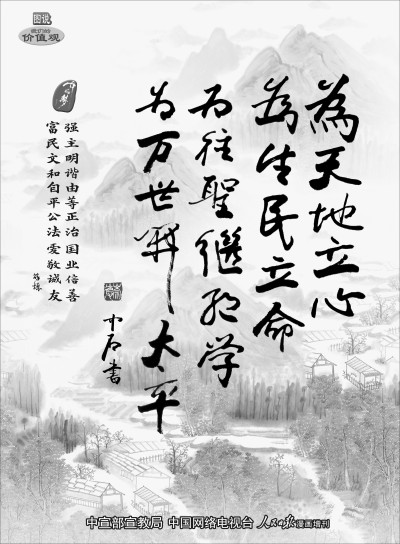 图说
我们的
价值观
為天地立心
為生民立命
为往聖繼绝学
为万世開太平
中石书
中国梦
富强
民主
文明
和谐
自由
平等
公正
法治
爱国
敬业
诚信
友善
中宣部宣教局 中国网络电视台 人民日报漫画增刊